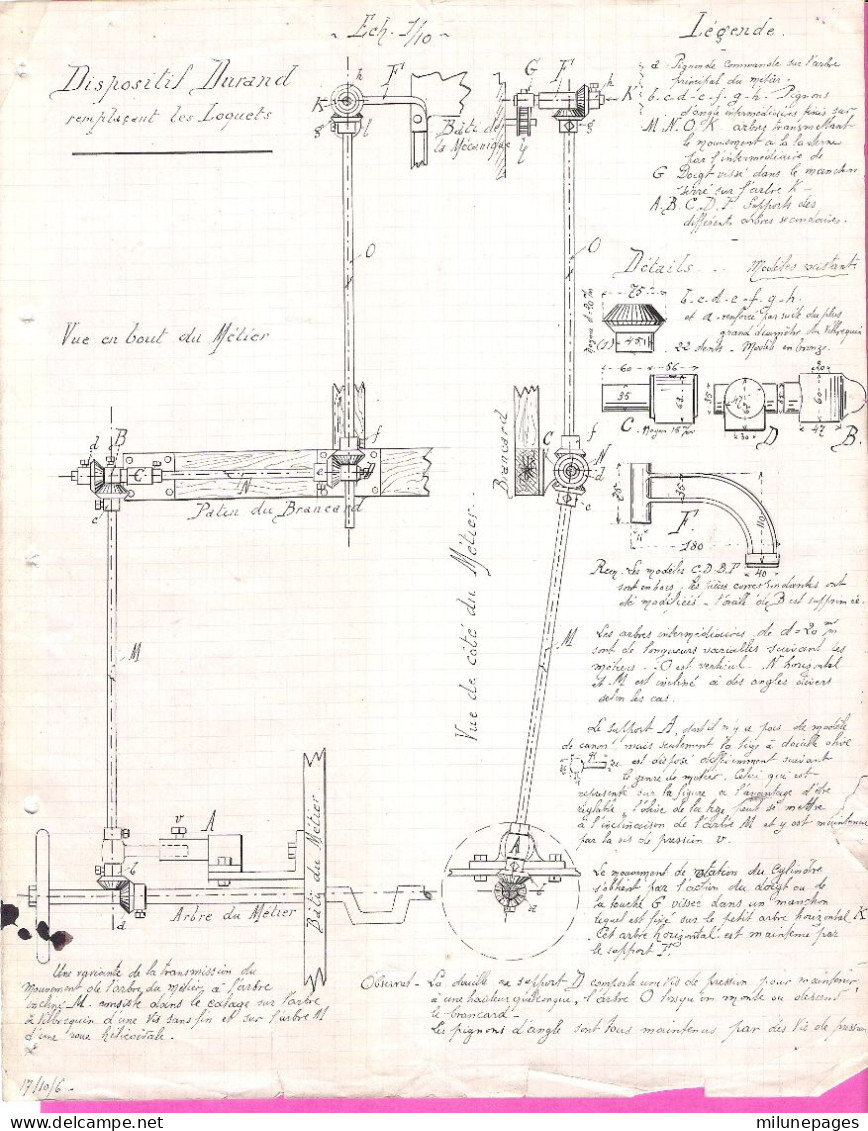 Ech. 1/10
Dispositif Durand
remplaçant les Loquets
Vue en bout du Métier
Bâti de
la Mécanique
Patin du Brancard
Arbre du Métier
Bâti du Métier
Brancard
Vue de côté du Métier
Légende
a Pignon de commande sur l'arbre
principal du métier.
b. c. d. e. f. g. h. Pignons
d'angle intermédiaires fixés sur
M N. O. K. arbres transmettant
le mouvement à la
par l'intermédiaire de
G Doigt vissé dans le manchon
serré sur l'arbre K -
A. B. C. D. F Supports des
différents arbres secondaires.
Détails . . . Modèles existants
b-c-d-e-f-g-h.
et a renforcé par suite du plus
grand diamètre du vilebrequin
22 dents - Modèle en bronze.
75
60 56
35
C
D
47
B.
F
180
110
40
Rem. Les modèles C. D. B. F
sont en bois. les pièces correspondantes ont
été modifiées - l'oreille de B est supprimée.
Les arbres intermédiaires de d = 20 m/m
sont de longueurs variables suivant les
métiers. O est vertical. N horizontal
et M est incliné à des angles divers
selon les cas.
Le support A, dont il n'y a pas de modèle
de canon mais seulement la tige à douille olive
est disposé différemment suivant
le genre de métier. Celui qui est
représenté sur la figure a l'avantage d'être
réglable, l'olive de la tige peut se mettre
à l'inclinaison de l'arbre M et y est maintenue
par la vis de pression v.
Le mouvement de rotation du Cylindre
s'obtient par l'action du doigt ou de
la touche G vissée dans un manchon
lequel est fixé sur le petit arbre horizontal K
Cet arbre horizontal est maintenu par
le support F.
Une variante de la transmission du
Mouvement de l'arbre du métier à l'arbre
incliné M. consiste dans le calage sur l'arbre
à vilebrequin d'une vis sans fin et sur l'arbre M
d'une roue hélicoïdale.
Observat - La douille du support D comporte une vis de pression pour maintenir
à une hauteur quelconque, l'arbre O lorsqu'on monte ou descend
le brancard -
Les pignons d'angle sont tous maintenus par des vis de pression
17/10/6
milunepages